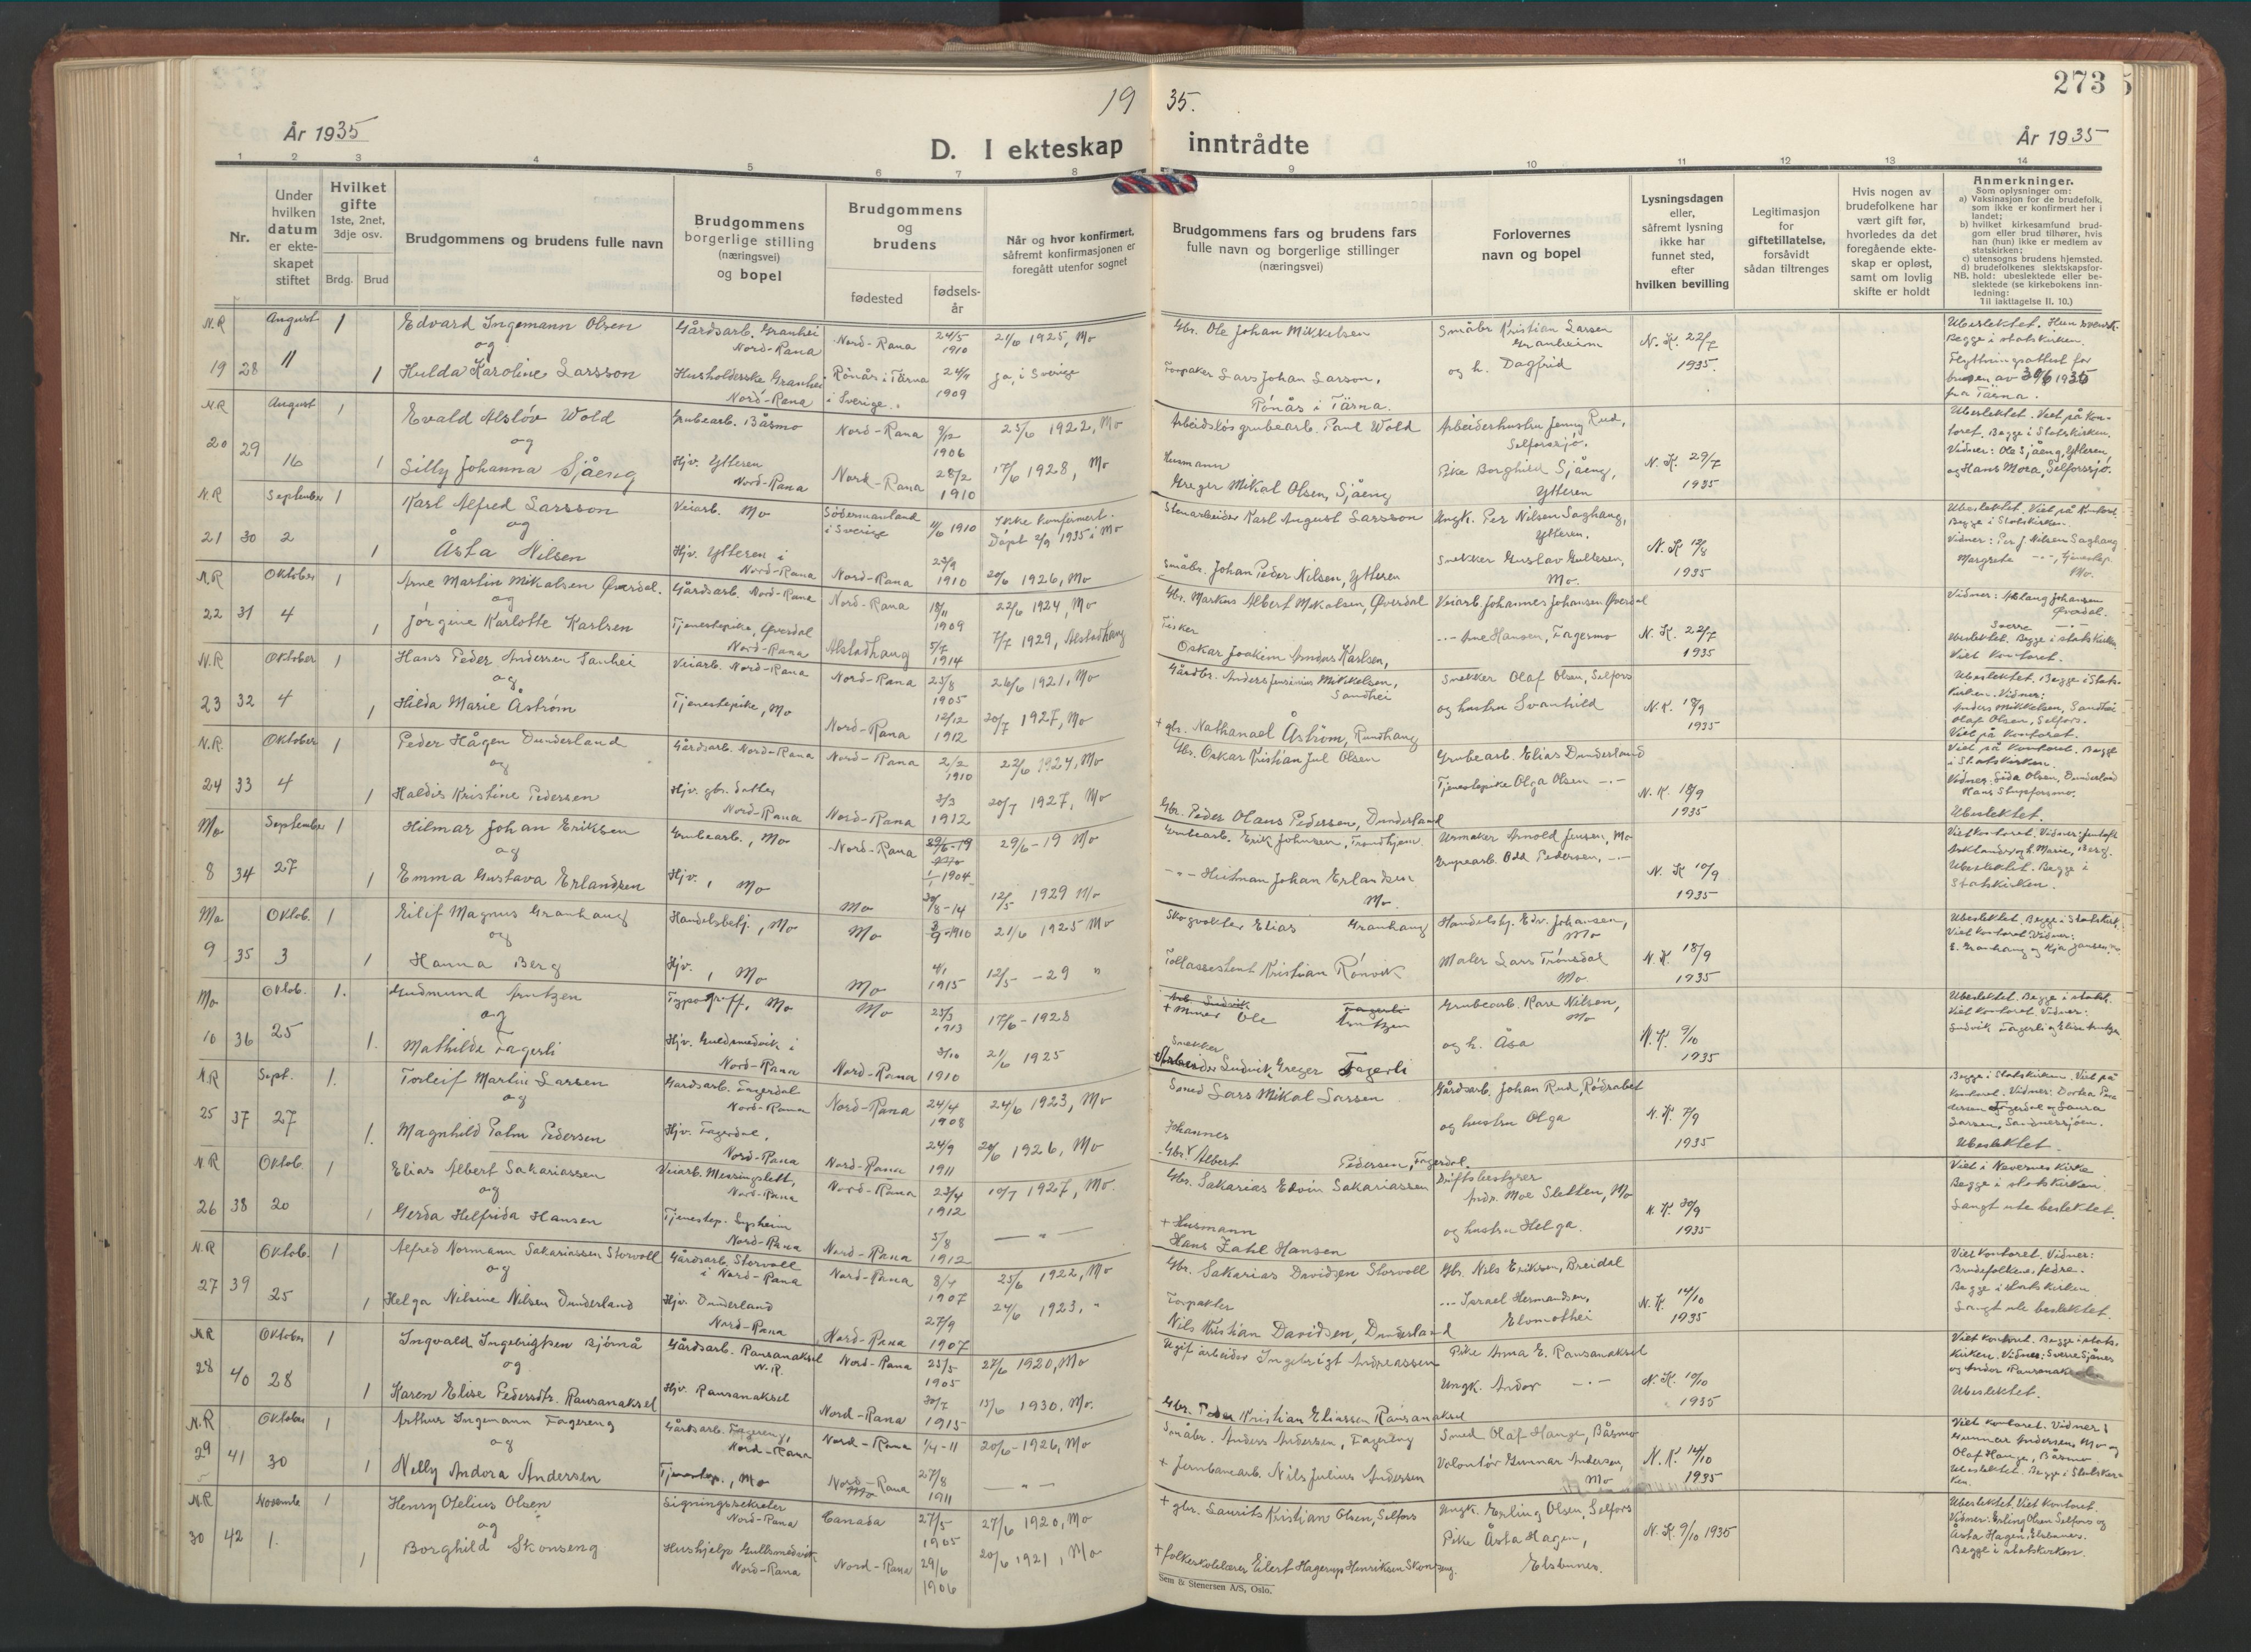 273
19 35.
År 1935
År 1935
D. I ekteskap inntrådte
1 2 3 4 5 6 7 8 9 10 11 12 13 14
Nr.
Under hvilken datum er ekteskapet stiftet
Hvilket gifte
1ste, 2net, 3dje osv.
Brdg. Brud
Brudgommens og brudens fulle navn
Brudgommens borgerlige stilling (næringsvei) og bopel
Brudgommens og brudens
fødested
fødsels-år
Når og hvor konfirmert, såfremt konfirmasjonen er foregått utenfor sognet
Brudgommens fars og brudens fars fulle navn og borgerlige stillinger (næringsvei)
Forlovernes navn og bopel
Lysningsdagen eller, såfremt lysning ikke har funnet sted, efter hvilken bevilling
Legitimasjon for giftetillatelse, forsåvidt sådan tiltrenges
Hvis nogen av brudefolkene har vært gift før, hvorledes da det foregående ekteskap er opløst, samt om lovlig skifte er holdt
Anmerkninger.
Som oplysninger om:
a) Vaksinasjon for de brudefolk, som ikke er konfirmert her i landet;
b) hvilket kirkesamfund brudgom eller brud tilhører, hvis han (hun) ikke er medlem av statskirken;
c) utensogns brudens hjemsted.
d) brudefolkenes slektskapsforhold: ubeslektede eller beslektede (se kirkebokens innledning:
NB. Til iakttagelse II. 10.)
N.R 19 28 August 11 1 Edvard Ingemann Olsen Gårdsarb. Granhei Nord-Rana Nord-Rana 24/5 1910 21/6 1925, Mo Gbr. Ole Johan Mikkelsen Småbr Kristian Larsen Granheim N.K. 22/7 1935. Ubeslektet. Hun svensk. Begge i statskirken.
og
1 Hulda Karoline Larsson Husholderske Granhei Nord-Rana Rönås i Tärna i Sverige 24/9 1909 ja, i Sverige Torpaker Lars Johan Larson, Rönås i Tärna. og h. Dagfrid Flyttningsattest for bruden av 30/6 1935 fra Tärna.
N.R 20 29 August 16 1 Evald Alsløv Wold Grubearb. Båsmo Nord-Rana 9/12 1906 25/6 1922, Mo Arbeidsløs grubearb. Paul Wold Arbeiderhustru Jenny Rud, Selforssjø. N.K. 29/7 1935 Ubeslektet. Viet på kontoret. Begge i Statskirken.
og
1 Silly Johanna Sjåeng Hjv. Ytteren Nord-Rana Nord-Rana 28/2 1910 17/6 1928, Mo Husmann Greger Mikal Olsen, Sjåeng Pike Borghild Sjåeng, Ytteren Vidner: Ole Sjåeng, Ytteren og Hans Moea, Selforssjø.
N.R 21 30 September 2 1 Karl Alfred Larsson Veiarb. Mo Södermanland i Sverige 11/6 1910 Ikke konfirmert. Döpt 2/9 1935 i Mo Stenarbeider Karl August Larsson Ungk. Per Nilsen Saghaug, Ytteren. N.K 12/8 1935 Ubeslektet. Viet på kontoret. Begge i Statskirken.
og
1 Åsta Nilsen Hjv. Ytteren i Nord-Rana Nord-Rana 22/9 1910 20/6 1926, Mo Småbr. Johan Peder Nilsen, Ytteren Snekker Gustav Gullesen, Mo. Vidner: Per J. Nilsen Saghaug Margrete -"-, tjenestep. Mo.
N.R 22 31 Oktober 4 1 Arne Martin Mikalsen Øverdal. Gårdsarb. Nord-Rana Nord-Rana 18/11 1909 22/6 1924, Mo Gbr. Markus Albert Mikalsen, Øverdal Veiarb. Johannes Johansen Øverdal N.K. 22/7 1935 Vidner: Aslaug Johansen Øverdal.
og
1 Jørgine Karlotte Karlsen Tjenestepike, Øverdal Nord-Rana Alstadhaug 5/7 1914 7/7 1929, Alstadhaug Fisker Oskar Joakim Andås Karlsen, -"- Arne Hansen, Fagermo Sverre -"- Ubeslektet. Begge i statskirken Viet kontoret.
N.R 23 32 Oktober 4 1 Hans Peder Andersen Sanhei Veiarb. Nord-Rana Nord-Rana 23/8 1905 26/6 1921, Mo Gårdbr. Anders Jensenius Mikkelsen, Sandhei Snekker Olaf Olsen, Selfors N.K. 18/9 1935 Ubeslektet. Begge i Statskirken. Vidner:
og
1 Hilda Marie Åström Tjenestepike, Mo Nord-Rana 12/12 1912 20/7 1927, Mo + gbr. Nathanael Åström, Rundhaug og hustru Svanhild Anders Mikkelsen, Sandhei Olaf Olsen, Selfors. Viet på kontoret.
N.R. 24 33 Oktober 4 1 Peder Hågen Dunderland Gårdsarb. Nord-Rana Nord-Rana 2/2 1910 22/6 1924, Mo Gbr. Oskar Kristian Jul Olsen Grubearb. Elias Dunderland N.K. 18/9 1935 Viet på kontoret. Begge i Statskirken.
og
1 Haldis Kristine Pedersen Hjv. gbr. datter Nord-Rana Nord-Rana 3/3 1912 20/7 1927, Mo Gbr. Peder Olaus Pedersen, Dunderland Tjenestepike Olga Olsen -"- Vidner: Sida Olsen, Dunderland Hans Stupforsmo. Ubeslektet.
Mo 8 34 September 27 1 Hilmar Johan Eriksen Grubearb., Mo Nord-Rana 1/1 1904 29/6-19 Mo Grubearb. Erik Johnsen, Trondhjem. Urmaker Arnold Jensen, Mo N.K 10/9 1935 Viet kontoret. Vidner:
og
1 Emma Gustava Erlandsen Hjv., Mo Mo 30/8-14 12/5 1929 Mo -"- Heitman Johan Erlandsen Mo. Grupearb. Odd Pedersen, -"- Ubeslektet. Begge i Statskirken.
Mo 9 35 Oktob. 3 1 Eilif Magnus Granhaug Handelsbetj., Mo Mo 3/9-1910 21/6 1925 Mo Skogvokter Elias Granhaug Handelsbj. Edv. Johansen, Mo N.K. 18/9 1935 Ubeslektet. Begge i Statskirk. Viet kontoret Vidner:
og
1 Hanna Berg Hjv., Mo Mo 4/1 1915 12/5 -29 " Tollassestent Kristian Rönvik Maler Lars Trönsdal Mo. E. Granhaug og Kaja Jansen, Mo
Mo 10 36 Oktob. 25 1. Gudmund Arntzen Typograff, Mo Mo 23/3 1913 17/6-1928 + Murer Ole Arntzen Grubearb. Kare Nilsen, Mo N.K. 9/10 1935 Ubeslektet. Begge i statsk. Viet kontoret. Vidner:
og
1. Mathilde Fagerli Hjv. Guldsmedvik i Nord-Rana Nord-Rana 3/10 1910 21/6 1925 Snekker Ludvik Greger Fagerli og h. Åsa Ludvik Fagerli og Elise Arntzen
N.R 25 37 Sept. 27 1. Torleif Martin Larsen Gårdsarb. Fagerdal Nord-Rana Nord-Rana 24/4 1908 24/6 1923, Mo Smed Lars Mikal Larsen Gårdsarb. Johan Rud, Rödrabet N.K. 7/9 1935 Begge i Statskirken. Viet på kontoret. Vidner: Dortea Pedersen Fagerdal og Laura Larsen, Sandnessjøen.
og
1. Magnhild Palm Pedersen Hjv. Fagerdal, Nord-Rana Nord-Rana 24/9 1911 20/6 1926, Mo Gbr. Johannes Albert Pedersen, Fagerdal. og hustru Olga Ubeslektet.
N.R 26 38 Oktob. 20 1 Elias Albert Sakariassen Veiarb. Messingslett, Nord-Rana Nord-Rana 23/4 1912 10/7 1927, Mo. Gbr. Sakarias Edvin Sakariassen Driftsbestyrer Andr. Moe Sletten, Mo N.K. 30/9 1935 Viet i Nevernes kirke Begge i statskirken.
og
1 Gerda Helfrida Hansen Tjenestep. Lysheim Nord-Rana Nord-Rana 5/8 1912 -"- + Husmann Hans Zahl Hansen og hustru Helga. Langt ute beslektet.
N.R 27 39 Oktob. 25 1 Alfred Normann Sakariassen Storvoll Gårdsarb. Storvoll i Nord-Rana Nord-Rana 8/4 1907 25/6 1922, Mo Gbr. Sakarias Davidsen Storvoll Gbr. Nils Eriksen, Breidal N.K. 14/10 1935 Viet kontoret. Vidner: Brudefolkenes fedre.
og
1 Helga Nilsine Nilsen Dunderland Hjv. Dunderland Nord-Rana Nord-Rana 27/9 1907 24/6 1923, " Forpakter Nils Kristian Davidsen, Dunderland -"- Israel Hermandsen, Elvmothei Begge i statskirken. Langt ute beslektet.
N.R 28 40 Oktober 28 1 Ingvald Ingebrigtsen Bjørnå Gårdsarb. Ransanaksel N.R. Nord-Rana 25/5 1905 27/6 1920, Mo Ugift arbeider Ingebrigt Andreassen Pike Anna E. Ransanaksel N.K. 10/10 1935 Viet kontoret. Begge i statskirken. Vidner: Sverre Sjånes og Andor Ransanaksel
og
1 Karen Elise Pedersdtr. Ransanaksel Hjv. Ransanaksel Nord-Rana 30/7 1915 15/6 1930, Mo. Gbr. Peder Kristian Eliassen Ransanaksel Ungk. Andor -"- Ubeslektet.
N.R 29 41 Oktober 30 1 Arthur Ingemann Fagereng Gårdsarb. Fagereng, Nord-Rana Nord-Rana 1/4-11 20/6-1926, Mo Småbr. Anders Andersen, Fagereng Smed Olaf Hauge, Båsmo N.K. 14/10 1935 Viet kontoret. Vidner: Gunnar Andersen, Mo og Olaf Hauge, Båsmo.
og
1 Nelly Andora Andersen Tjenestep., Mo Nord-Rana Mo 27/8 1911 -"- + Jernbanearb. Nils Julius Andersen Volontör Gunnar Andersen, Mo Ubeslektet. Begge i Statskirken.
N.R 30 42 Novembr 1. 1 Henry Otelius Olsen Signingssekretær Nord-Rana Canada 27/5 1905 27/6 1920, Mo + gbr. Laurits Kristian Olsen, Selfors Ungk. Erling Olsen, Selfors N.K. 9/10 1935 Ubeslektet. Viet kontoret. Vidner: Erling Olsen Selfors og
og
1 Borghild Skonseng Hushjelp Gullsmedvik Nord-Rana Nord-Rana 29/6 1906 20/6 1921, Mo + folkeskolelærer Eilert Hagerup Henriksen Skonseng. Pike Åsta Hagen, Elsbunes. Åsta Hagen, Elsbunes. Begge i statskirken.
Sem & Stenersen A/S, Oslo.